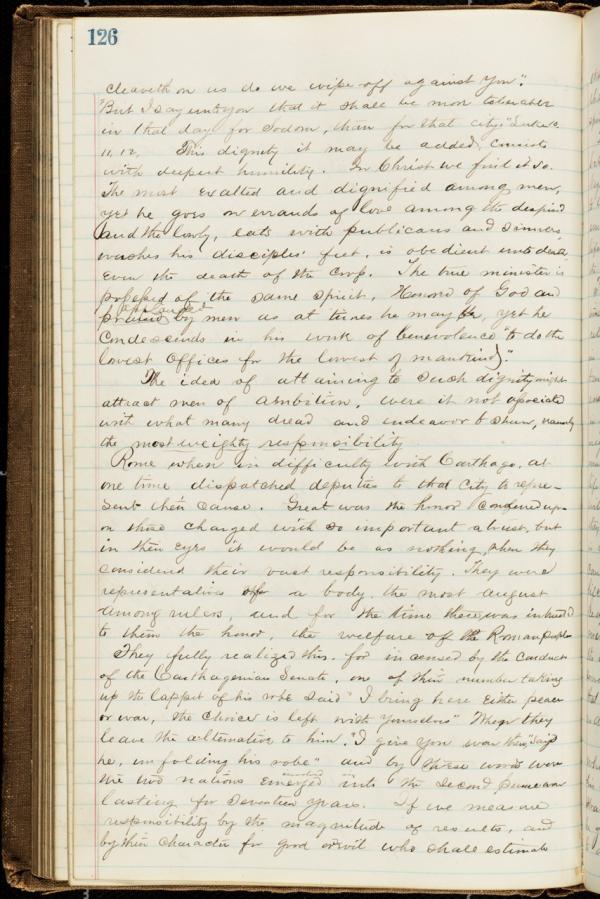 126
cleaveth on us do we wipe off against you".
"But I say unto you that it shall be more tolerable
in that day for Sodom, than for that city." Luke X.
11, 12. This dignity it may be added, consists
with deepest humility. In Christ we find it so.
The most exalted and dignified among men,
yet he goes on errands of love among the despised
and the lowly, eats with publicans and sinners,
washes his disciples' feet, is obedient unto death,
even the death of the cross. The true minister is
possessed of the same spirit. Honored of God and
praised by men as at times he may be, yet he
condescends in his work of benevolence "to do the
lowest offices for the lowest of mankind)."
The idea of attaining to such dignity might
attract men of ambition, were it not associated
with what many dread and endeavor to shun, namely
the most weighty responsibility
Rome when in difficulty with Carthage, at
one time dispatched deputies to that city to repre-
sent their cause. Great was the honor conferred up-
on those charged with so important a trust, but
in their eyes it would be as nothing, when they
considered their vast responsibility. They were
representatives of a body, the most august
among rulers, and for the time there was intrusted
to them the honor, the welfare of the Roman people
They fully realized this. for incensed by the conduct
of the Carthagenian Senate, one of their number taking
up the lappet of his robe said "I bring here either peace
or war, the choice is left with yourselves" When they
leave the alternative to him, "I give you war then," said
he, unfolding his robe" and by these words were
the two nations emerged into the Second Punic war
lasting for seventeen years. If we measure
responsibility by the magnitude of results, and
by their character for good or evil who shall estimate